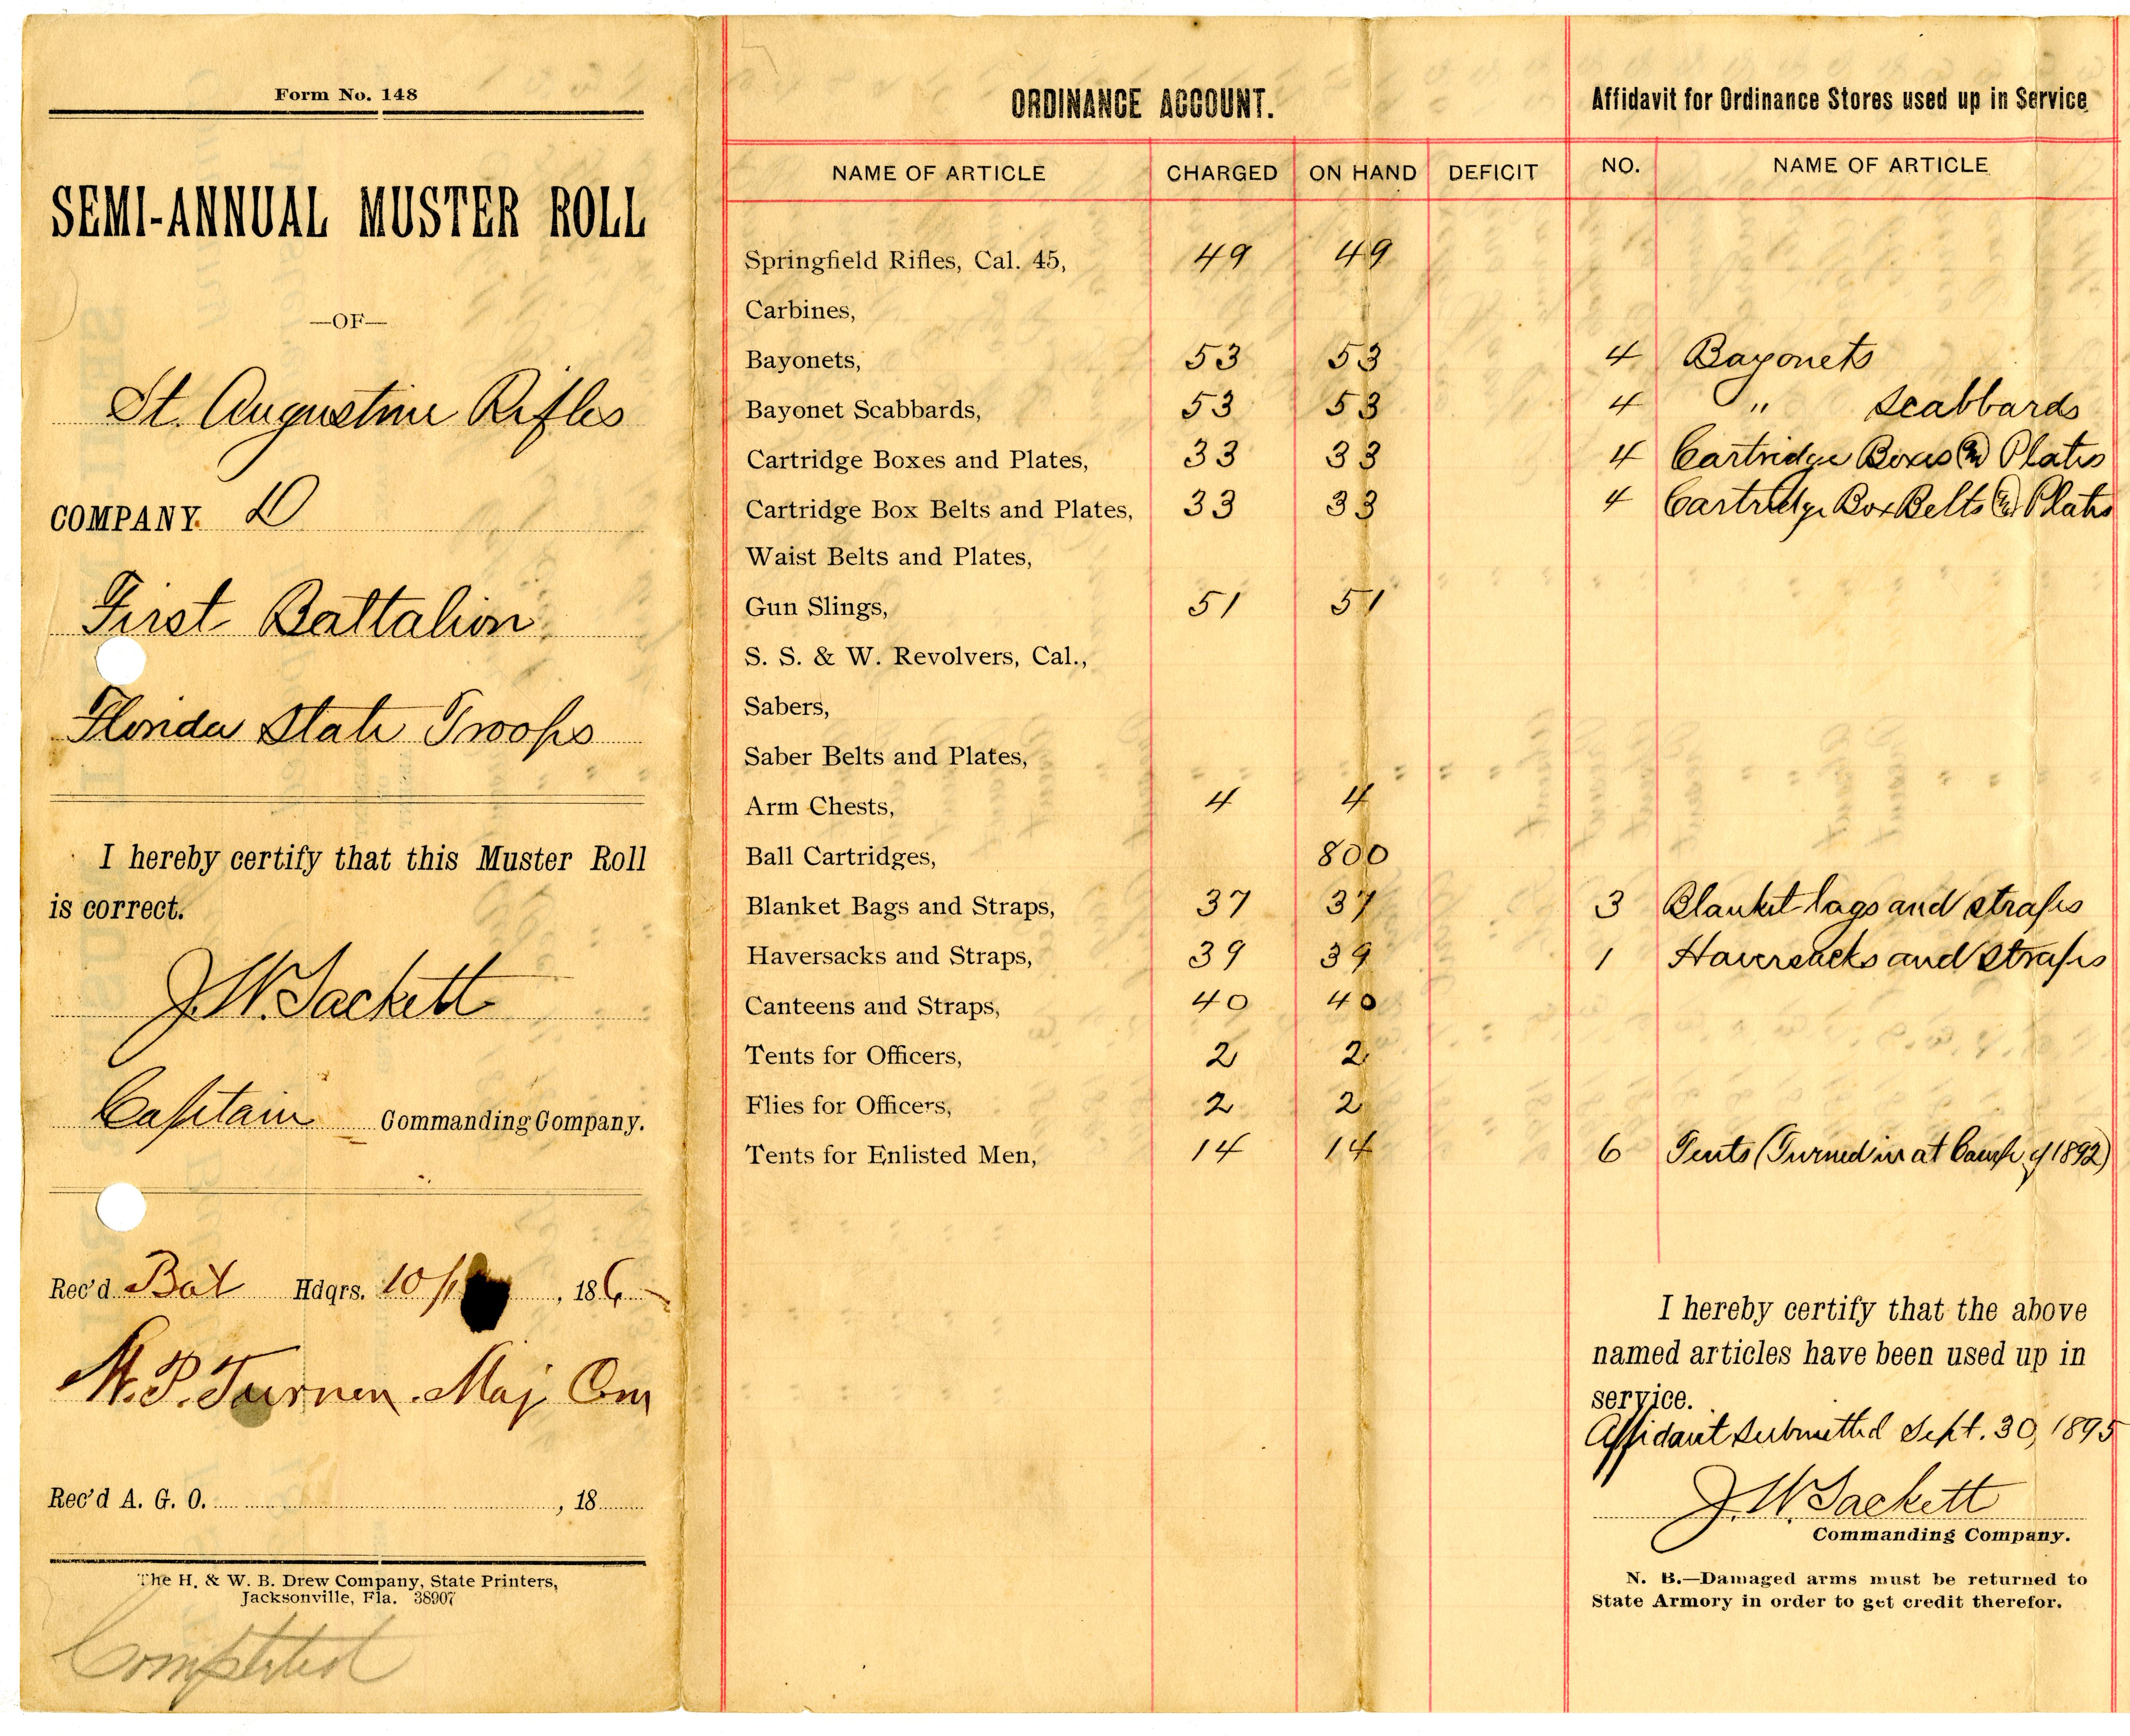 Form No. 148
SEMI-ANNUAL MUSTER ROLL
—OF—
St. Augustine Rifles
COMPANY. D
First Battalion
Florida State Troops
I hereby certify that this Muster Roll
is correct.
J. W. Sackett
Captain Commanding Company.
Rec'd Bat Hdqrs. 10/ , 18
W. P. Turner. Maj Com
Rec'd A. G. O. , 18
The H. & W. B. Drew Company, State Printers,
Jacksonville, Fla. 38907
Completed
ORDINANCE ACCOUNT.
NAME OF ARTICLE CHARGED ON HAND DEFICIT
Springfield Rifles, Cal. 45, 49 49
Carbines,
Bayonets, 53 53
Bayonet Scabbards, 53 53
Cartridge Boxes and Plates, 33 33
Cartridge Box Belts and Plates, 33 33
Waist Belts and Plates,
Gun Slings, 51 51
S. S. & W. Revolvers, Cal.,
Sabers,
Saber Belts and Plates,
Arm Chests, 4 4
Ball Cartridges, 800
Blanket Bags and Straps, 37 37
Haversacks and Straps, 39 39
Canteens and Straps, 40 40
Tents for Officers, 2 2
Flies for Officers, 2 2
Tents for Enlisted Men, 14 14
Affidavit for Ordinance Stores used up in Service
NO. NAME OF ARTICLE
4 Bayonets
4 " Scabbards
4 Cartridge Boxes Plates
4 Cartridge Box Belts Plates
3 Blanket bags and straps
1 Haversacks and straps
6 Tents (Turned in at Camp of 1892)
I hereby certify that the above
named articles have been used up in
service.
Affidavit submitted Sept. 30, 1895
J. W. Sackett
Commanding Company.
N. B.—Damaged arms must be returned to
State Armory in order to get credit therefor.